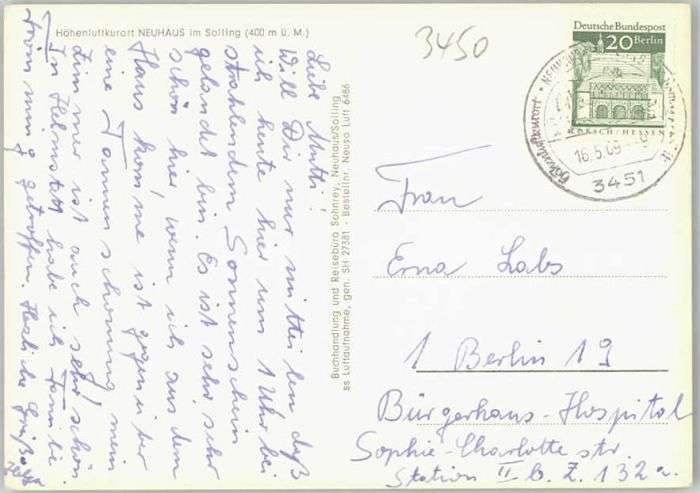 Höhenluftkurort NEUHAUS im Solling (400 m ü. M.)
3450
Deutsche Bundespost
20 Berlin
LORSCH/HESSEN
Höhenluftkurort
16.5.69
3451
Liebe Mutti!
Will Dir nur mitteilen daß
ich heute hier um 1 Uhr bei
strahlendem Sonnenschein
gelandet bin. Es ist sehr
schön hier wenn ich aus dem
Haus komme ist gegenüber
eine Tannenschonung mein
Zimmer ist auch sehr schön
In Helmstett habe ich Familie
getroffen. Herzliche Grüße
Buchhandlung und Reisebüro Sohnrey, Neuhaus/Solling
ss Luftaufnahme, gen. SH 27381 - Bestellnr. Neuso Luft 6486
Frau
Erna Labs
1 Berlin 19
Bürgerhaus-Hospital
Sophie-Charlotte str.
Station II b. Z. 132a.